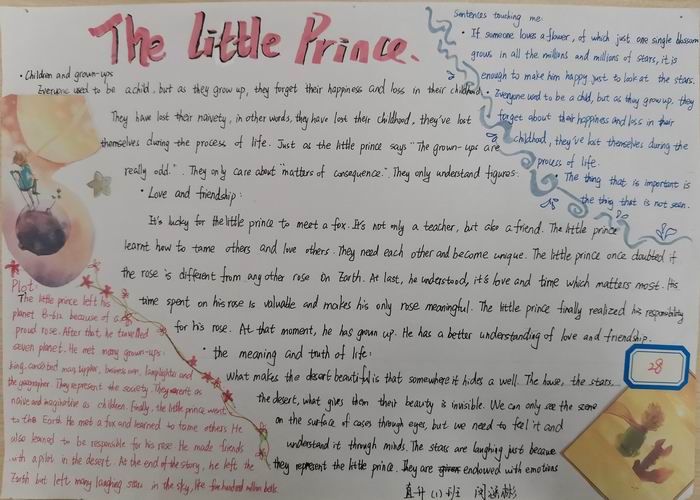 The Little Prince.
• Children and grown-ups
Everyone used to be a child, but as they grow up, they forget their happiness and loss in their childhood.
They have lost their naivety, in other words, they have lost their childhood, they've lost
themselves during the process of life. Just as the little prince says "The grown-ups are
really odd." They only care about "matters of consequence". They only understand figures.
• Love and friendship:
It's lucky for the little prince to meet a fox. It's not only a teacher, but also a friend. The little prince
learnt how to tame others and love others. They need each other and become unique. The little prince once doubted if
the rose is different from any other rose on Earth. At last, he understood, it's love and time which matters most. His
time spent on his rose is valuable and makes his only rose meaningful. The little prince finally realized his responsibility
for his rose. At that moment, he has grown up. He has a better understanding of love and friendship.
• the meaning and truth of life:
What makes the desert beautiful is that somewhere it hides a well. The house, the stars...
the desert, what gives them their beauty is invisible. We can only see the scene
on the surface of cases through eyes, but we need to feel it and
understand it through minds. The stars are laughing just because
they represent the little prince. They are endowed with emotions
Sentences touching me:
• If someone loves a flower, of which just one single blossom
grows in all the millions and millions of stars, it is
enough to make him happy just to look at the stars.
• Everyone used to be a child, but as they grow up, they
forget about their happiness and loss in their
childhood, they've lost themselves during the
process of life.
• The thing that is important is
the thing that is not seen.
Plot
The little prince left his
planet B-612 because of a
proud rose. After that, he travelled
seven planet. He met many grown-ups:
king, conceited man, tippler, businessman, lamplighter and
the geographer. They represent the society. They aren't as
naive and imaginative as children. Finally, the little prince went
to the Earth. He met a fox and learned to tame others. He
also learned to be responsible for his rose. He made friends
with a pilot in the desert. At the end of the story, he left the
Earth but left many laughing stars in the sky, like five hundred million bells
28